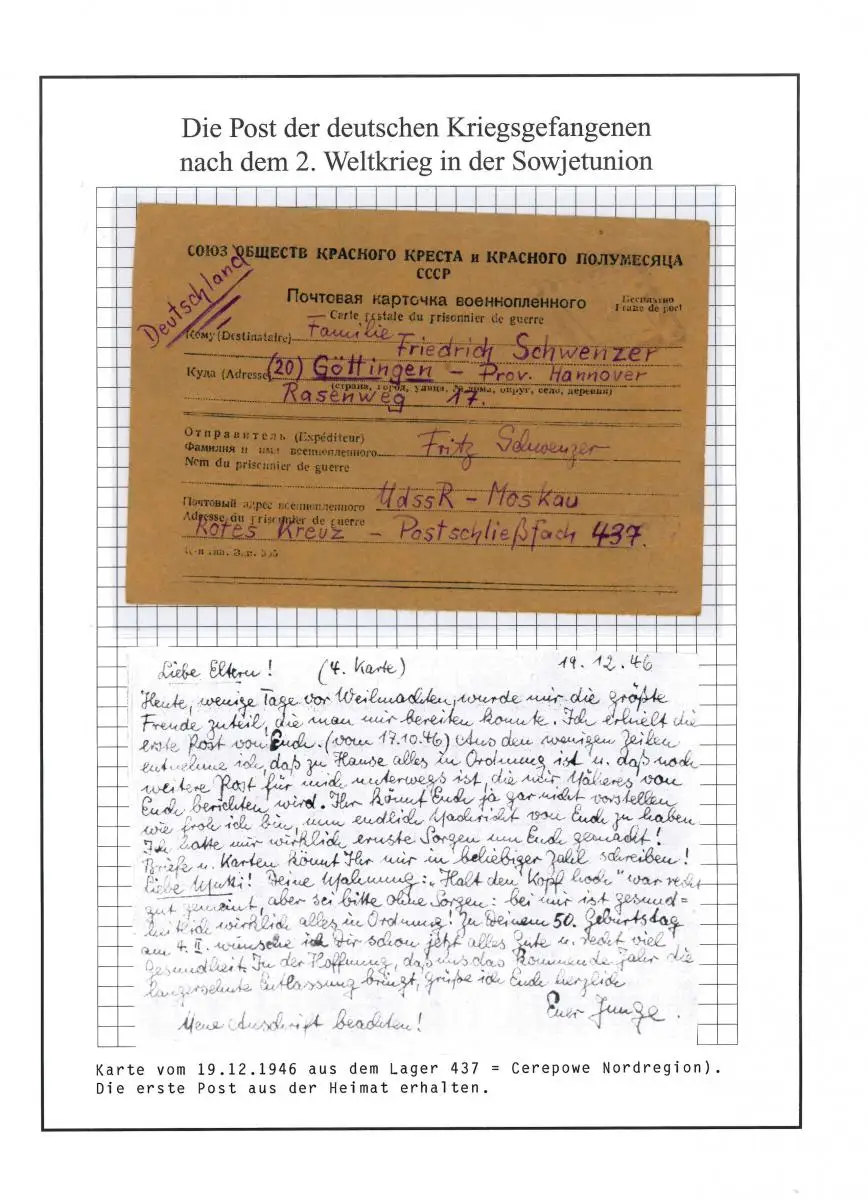 Die Post der deutschen Kriegsgefangenen
nach dem 2. Weltkrieg in der Sowjetunion
СОЮЗ ОБЩЕСТВ КРАСНОГО КРЕСТА и КРАСНОГО ПОЛУМЕСЯЦА
СССР
Deutschland
Почтовая карточка военнопленного
Бесплатно
Franc de port
Carte postale du prisonnier de guerre
Кому (Destinataire) Familie
Friedrich Schwenzer
Куда (Adresse) (20) Göttingen – Prov. Hannover
(страна, город, улица, № дома, округ, село, деревня)
Rasenweg 17.
Отправитель (Expéditeur)
Фамилия и имя военнопленного Fritz Schwenzer
Nom du prisonnier de guerre
Почтовый адрес военнопленного UdssR – Moskau
Adresse du prisonnier de guerre
Rotes Kreuz – Postschließfach 437.
Liebe Eltern! (4. Karte) 19.12.46
Heute, wenige Tage vor Weihnachten, wurde mir die größte
Freude zuteil, die man mir bereiten konnte. Ich erhielt die
erste Post von Euch. (vom 17.10.46) Aus den wenigen Zeilen
entnehme ich, daß zu Hause alles in Ordnung ist u. daß noch
weitere Post für mich unterwegs ist, die mir Näheres von
Euch berichten wird. Ihr könnt Euch ja gar nicht vorstellen,
wie froh ich bin, nun endlich Nachricht von Euch zu haben.
Ich hatte mir wirklich ernste Sorgen um Euch gemacht!
Briefe u. Karten könnt Ihr mir in beliebiger Zahl schreiben!
Liebe Mutti! Deine Mahnung: „Halt den Kopf hoch" war recht
gut gemeint, aber sei bitte ohne Sorgen: bei mir ist gesund=
heitlich wirklich alles in Ordnung! Zu Deinem 50. Geburtstag
am 4. II. wünsche ich Dir schon jetzt alles Gute u. recht viel
Gesundheit. In der Hoffnung, daß uns das kommende Jahr die
langersehnte Entlassung bringt, grüße ich Euch herzlich
Euer Junge.
Neue Anschrift beachten!
Karte vom 19.12.1946 aus dem Lager 437 = Cerepowe Nordregion).
Die erste Post aus der Heimat erhalten.